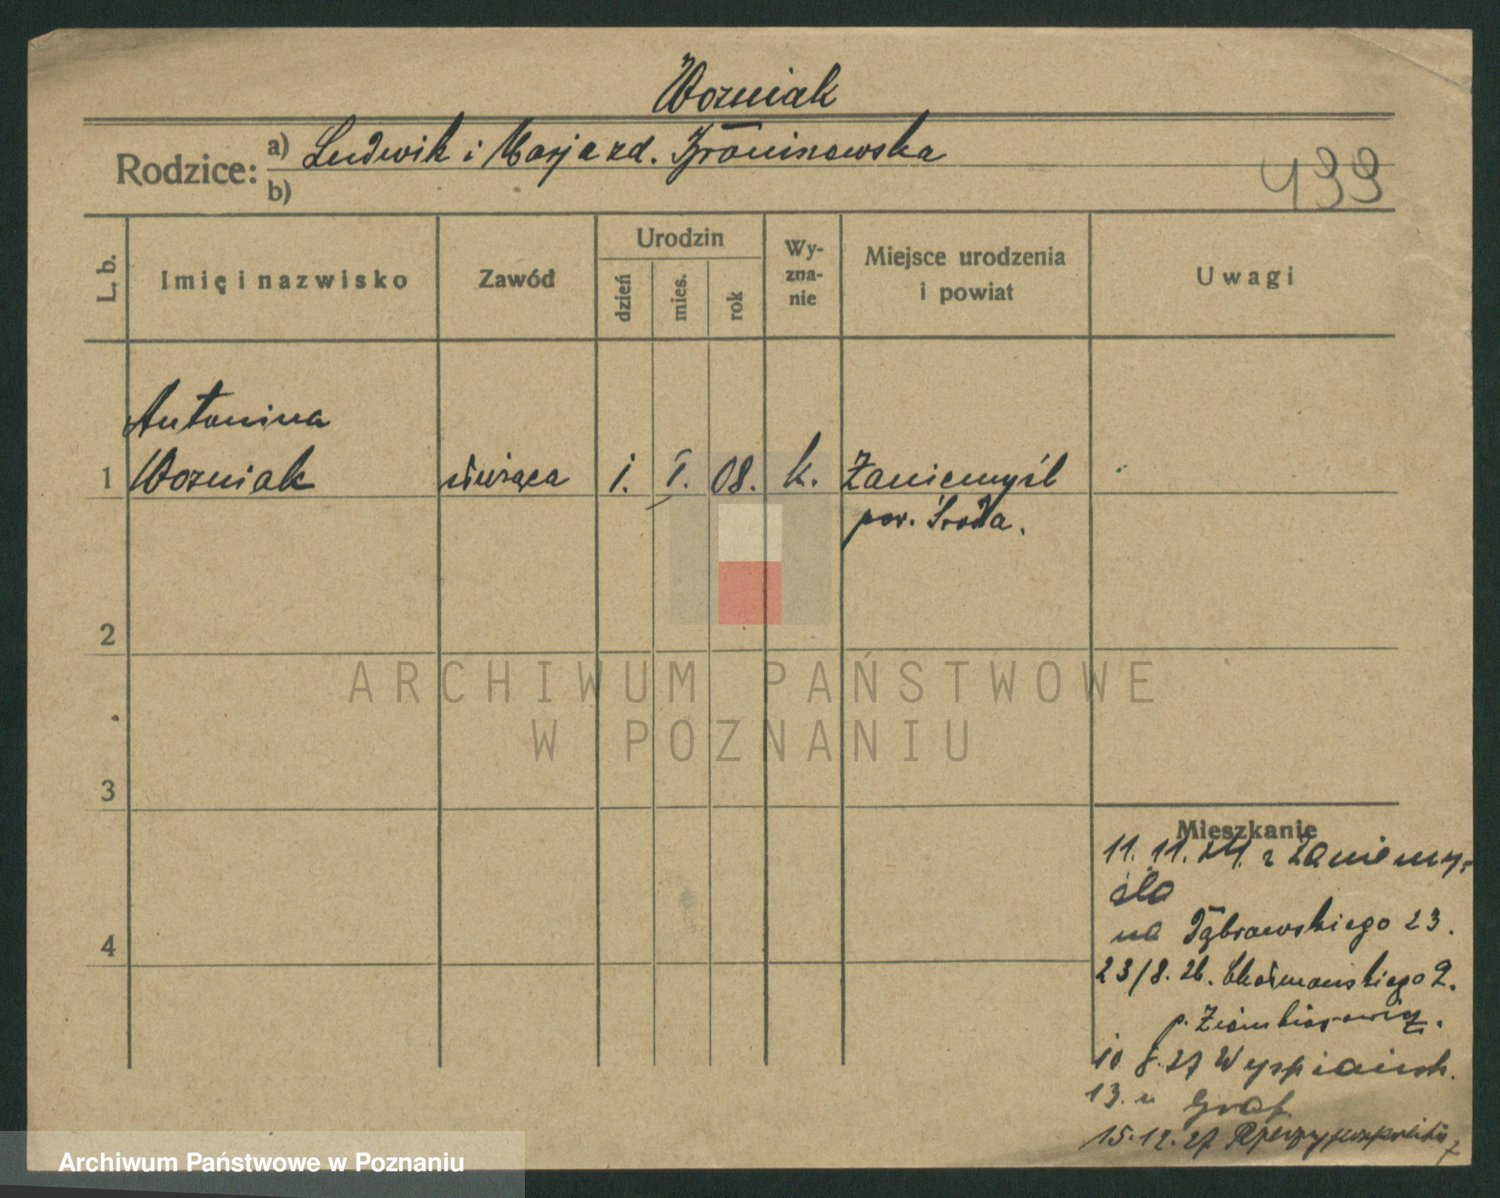 Wozniak
Rodzice: a) Ludwik i Marja zd.
b)
499
L. b.
Imię i nazwisko
Zawód
Urodzin
dzień
mies.
rok
Wy-
zna-
nie
Miejsce urodzenia
i powiat
Uwagi
Antonina
1 Wozniak służąca 1. I. 08. k. Zaniemyśl
pow. Środa.
2
3
4
ARCHIWUM PAŃSTWOWE
W POZNANIU
Mieszkanie
11. 11. 24. z Zaniemy-
śla
na Dąbrowskiego 23.
23/8. 26.
p.
10 8. 27 Wyspiańsk.
13. u Graf
15.12.27 Rzeczypospolitej 7
Archiwum Państwowe w Poznaniu